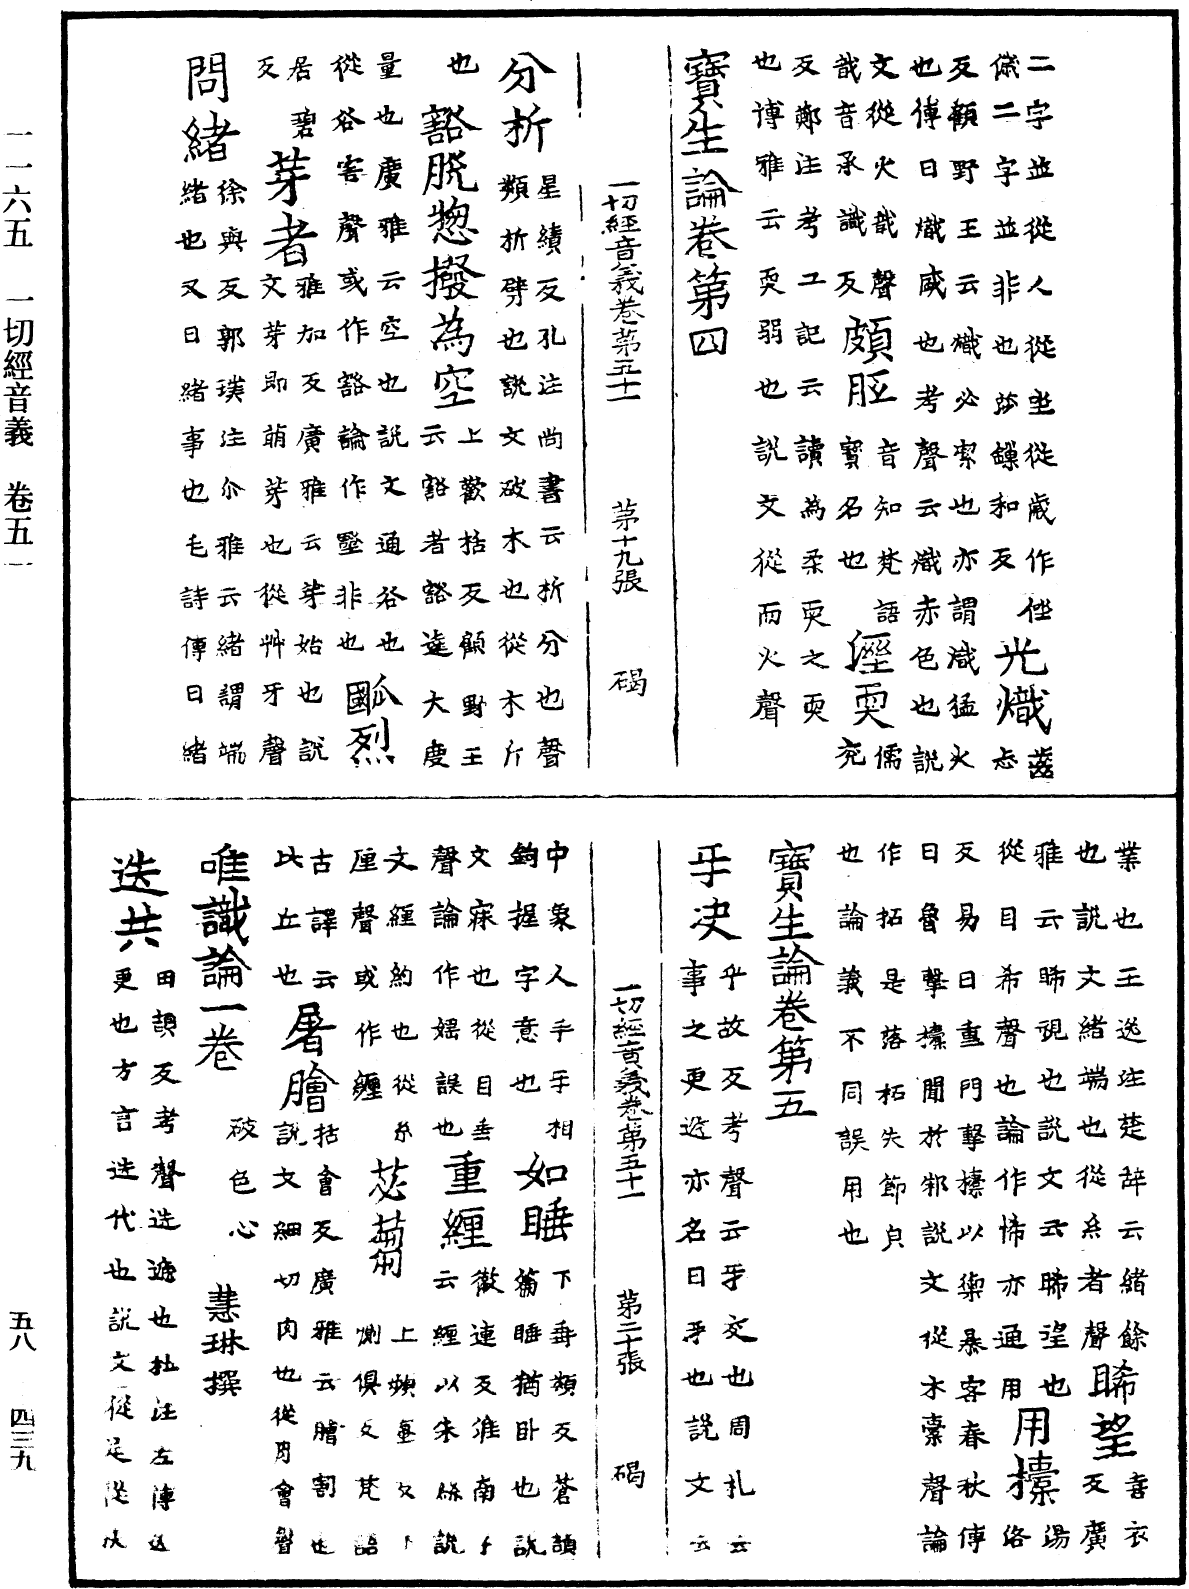 二字並從人從坐從歲作㑅
傞二字並非也莎鏁和反
光熾
齒志
反顧野王云熾必潔也亦謂熾猛火
也傳曰熾盛也考聲云熾赤色也說
文從火戠聲
戠音承識反
頗胝
音知梵語
寶名也
溼耎
儒兗
反鄭注考工記云讀為柔耎之耎
也博雅云耎弱也說文從而火聲
寶生論卷第四
一切經音義卷第五十一 第十九張 碣
分析
星績反孔注尚書云析分也聲
類析劈也說文破木也從木斤
也
豁脫惣撥為空
上歡括反顧野王
云豁者豁達大度
量也廣雅云空也說文通谷也
從谷害聲或作豁論作壑非也
𧇾烈
居碧
反
芽者
雅加反廣雅云芽始也說
文芽即萌芽也從艸牙聲
問緒
徐與反郭璞注尒雅云緒謂端
緒也又曰緒事也毛詩傳曰緒
業也王逸注楚辞云緒餘
也說文緒端也從糸者聲
睎望
喜衣
反廣
雅云睎視也說文云睎望也
從目希聲也論作悕亦通用
用㯓
湯洛
反易曰重門擊㯓以禦暴客春秋傳
曰魯擊㯓聞於邾說文從木橐聲論
作拓是落柘失節貞
也論義不同誤用也
寶生論卷第五
㸦决
乎故反考聲云㸦交也周礼云
事之更迆亦名曰㸦也說文云
一切經音義卷第五十一 第二十張 碣
中象人手手相
鉤握字意也
如睡
下垂類反蒼頡
篇睡猶卧也說
文寐也從目垂
聲論作㛗誤也
重纏
徹連反淮南子
云纏以朱絲說
文纏約也從糸
厘聲或作纏
苾蒭
上頻蜜反下
惻俱反梵語
古譯云
比丘也
屠膾
括會反廣雅云膾割也
說文細切肉也從肉會聲
唯識論一卷
破色心 慧琳撰
迭共
田頡反考聲迭遞也杜注左傳迭
更也方言迭代也說文從辵從失
一一六五 一切經音義 卷五一
五八 四三九